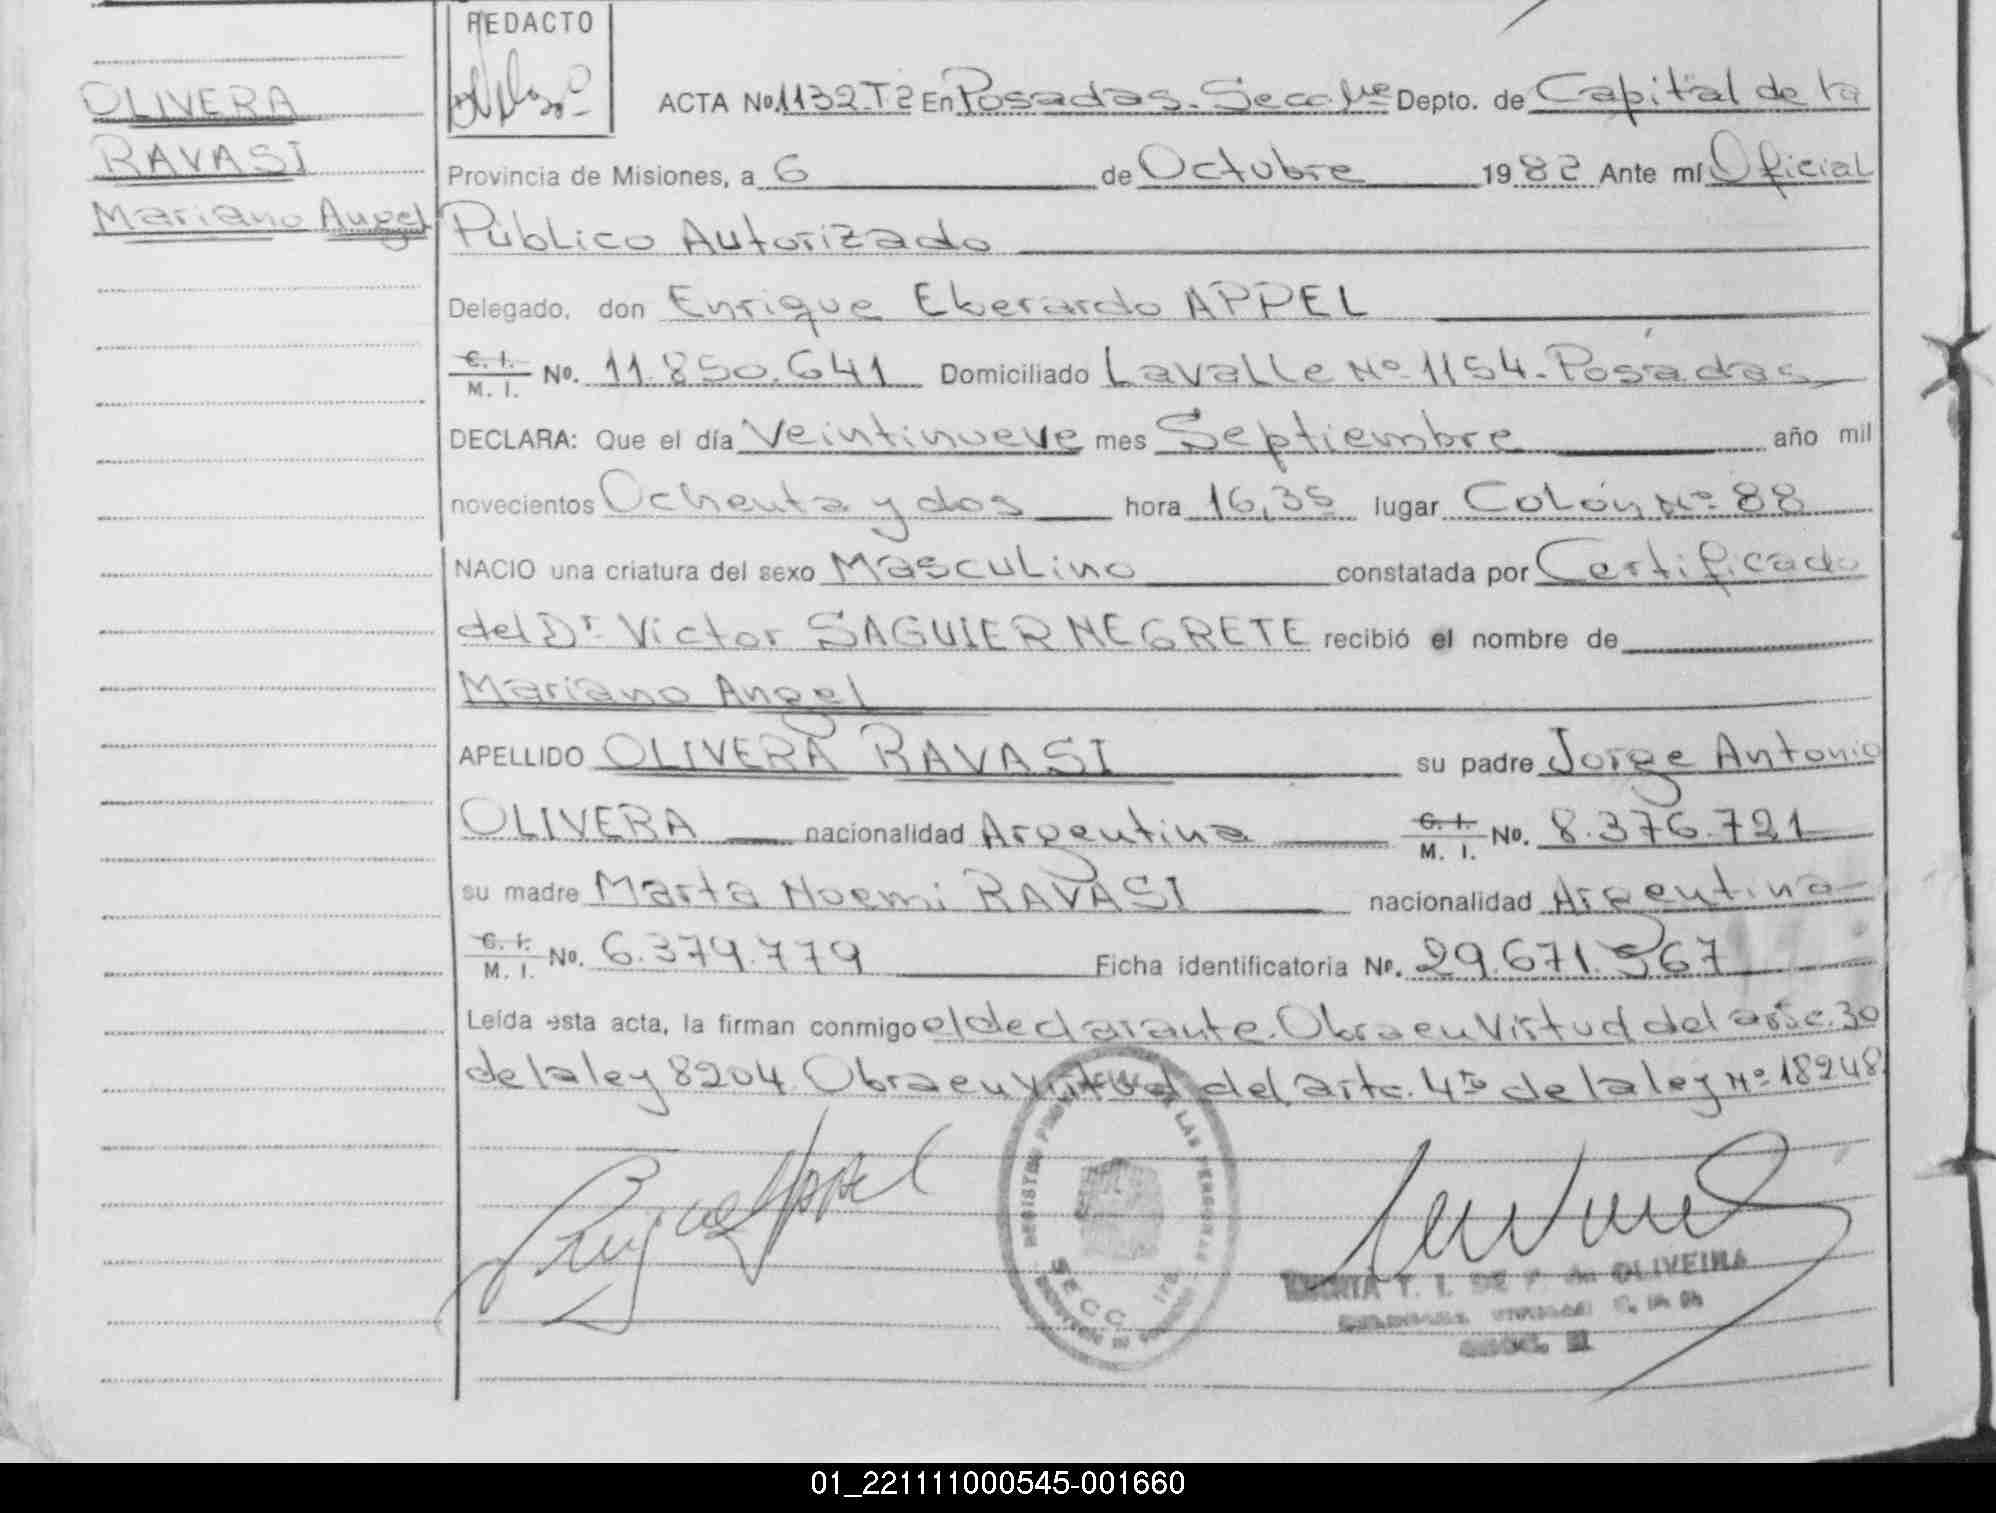 REDACTO
OLIVERA
RAVASI
Mariano Angel
ACTA No. 1132.T2 En Posadas. Secc. 1re Depto. de Capital de la
Provincia de Misiones, a 6 de Octubre 1982 Ante mí Oficial
Público Autorizado
Delegado, don Enrique Eberardo APPEL
C. I. M. I. No. 11.850.641 Domiciliado Lavalle No 1154. Posadas
DECLARA: Que el día Veintinueve mes Septiembre año mil
novecientos Ochenta y dos hora 16,35 lugar Colón No 88
NACIO una criatura del sexo Masculino constatada por Certificado
del Dr. Victor SAGUIER NEGRETE recibió el nombre de
Mariano Angel
APELLIDO OLIVERA RAVASI su padre Jorge Antonio
OLIVERA nacionalidad Argentina C. I. M. I. No. 8.376.721
su madre Marta Noemi RAVASI nacionalidad Argentina
C. I. M. I. No. 6.379.779 Ficha identificatoria No. 29.671.567
Leída esta acta, la firman conmigo el declarante. Obra en Virtud del 30
de la ley 8204. Obra en Virtud del artc. 4to de la ley No 18248
Enrique Appel
REGISTRO LAS PERSONAS
SECC. 1ra
T. I. DE OLIVEIRA
01_221111000545-001660